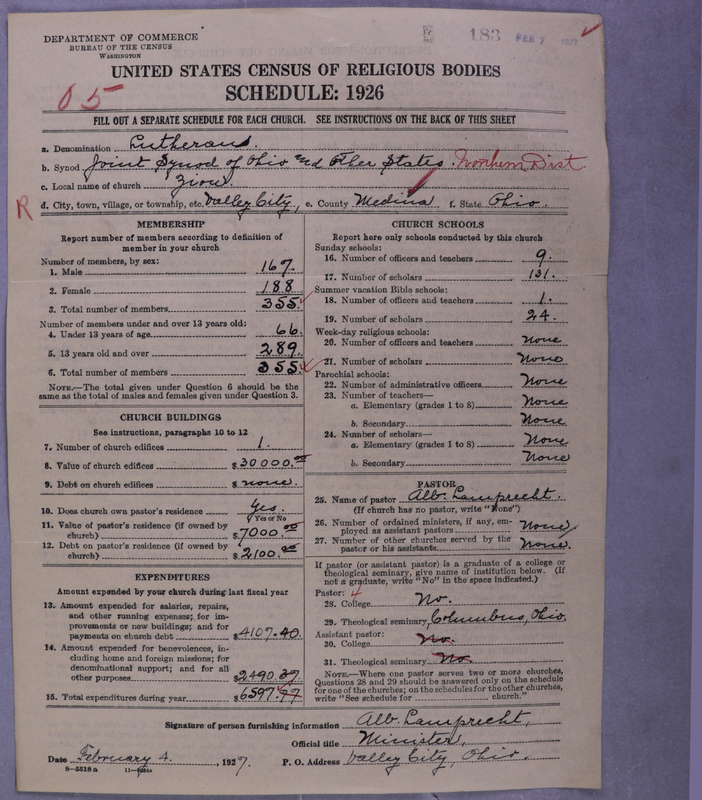 DEPARTMENT OF COMMERCE
BUREAU OF THE CENSUS
WASHINGTON
183 FEB 7 1927
UNITED STATES CENSUS OF RELIGIOUS BODIES
SCHEDULE: 1926
05
FILL OUT A SEPARATE SCHEDULE FOR EACH CHURCH. SEE INSTRUCTIONS ON THE BACK OF THIS SHEET
a. Denomination Lutheran.
b. Synod Joint Synod of Ohio and Other States. Dist
c. Local name of church Zion.
R d. City, town, village, or township, etc. Valley City, e. County Medina f. State Ohio.
MEMBERSHIP
Report number of members according to definition of
member in your church
Number of members, by sex:
1. Male 167.
2. Female 188
3. Total number of members 355.
Number of members under and over 13 years old:
4. Under 13 years of age 66.
5. 13 years old and over 289.
6. Total number of members 355.
NOTE.—The total given under Question 6 should be the
same as the total of males and females given under Question 3.
CHURCH BUILDINGS
See instructions, paragraphs 10 to 12
7. Number of church edifices 1.
8. Value of church edifices $30000.00
9. Debt on church edifices $none.
10. Does church own pastor's residence Yes.
(Yes or No
11. Value of pastor's residence (if owned by
church) $7000.00
12. Debt on pastor's residence (if owned by
church) $2100.00
EXPENDITURES
Amount expended by your church during last fiscal year
13. Amount expended for salaries, repairs,
and other running expenses; for im-
provements or new buildings; and for
payments on church debt $4107.40.
14. Amount expended for benevolences, in-
cluding home and foreign missions; for
denominational support; and for all
other purposes $2490.37
15. Total expenditures during year $6597.77
CHURCH SCHOOLS
Report here only schools conducted by this church
Sunday schools:
16. Number of officers and teachers 9.
17. Number of scholars 131.
Summer vacation Bible schools:
18. Number of officers and teachers 1.
19. Number of scholars 24.
Week-day religious schools:
20. Number of officers and teachers None
21. Number of scholars None
Parochial schools:
22. Number of administrative officers None
23. Number of teachers—
a. Elementary (grades 1 to 8) None
b. Secondary None
24. Number of scholars—
a. Elementary (grades 1 to 8) None
b. Secondary None
PASTOR
25. Name of pastor Alb. Lamprecht.
(If church has no pastor, write "None")
26. Number of ordained ministers, if any, em-
ployed as assistant pastors None
27. Number of other churches served by the
pastor or his assistants None.
If pastor (or assistant pastor) is a graduate of a college or
theological seminary, give name of institution below. (If
not a graduate, write "No" in the space indicated.)
Pastor: 4
28. College No.
29. Theological seminary Columbus, Ohio.
Assistant pastor:
30. College No.
31. Theological seminary No.
NOTE.—Where one pastor serves two or more churches,
Questions 28 and 29 should be answered only on the schedule
for one of the churches; on the schedules for the other churches,
write "See schedule for church."
Signature of person furnishing information Alb. Lamprecht,
Official title Minister,
Date February 4. , 1927. P. O. Address Valley City, Ohio.
8—5518 a